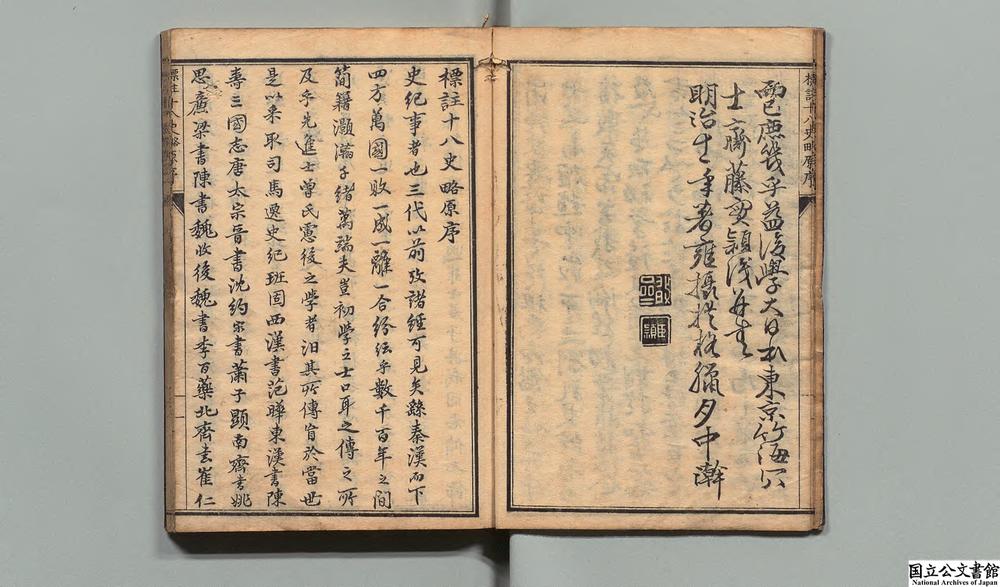 標註十八史略原序
而已庶幾乎益後學大日本東京竹海
士齋藤實穎
明治
標註十八史略原序
史紀事者也三代以前攷諸經可見矣繇秦漢而下
四方萬國一敗一成一離一合紛紜乎數千百年之間
簡籍灝瀚千緒萬端夫豈初學之士口耳之傳之所
及乎先進士曾氏憲後之學者汨其所傳盲於當世
是以采取司馬遷史紀班固西漢書范曄東漢書陳
壽三國志唐太宗晉書沈約宋書蕭子顯南齊書姚
思廉梁書陳書魏收後魏書李百藥北齊書崔仁
標註十八史略原序
国立公文書館
National Archives of Japan